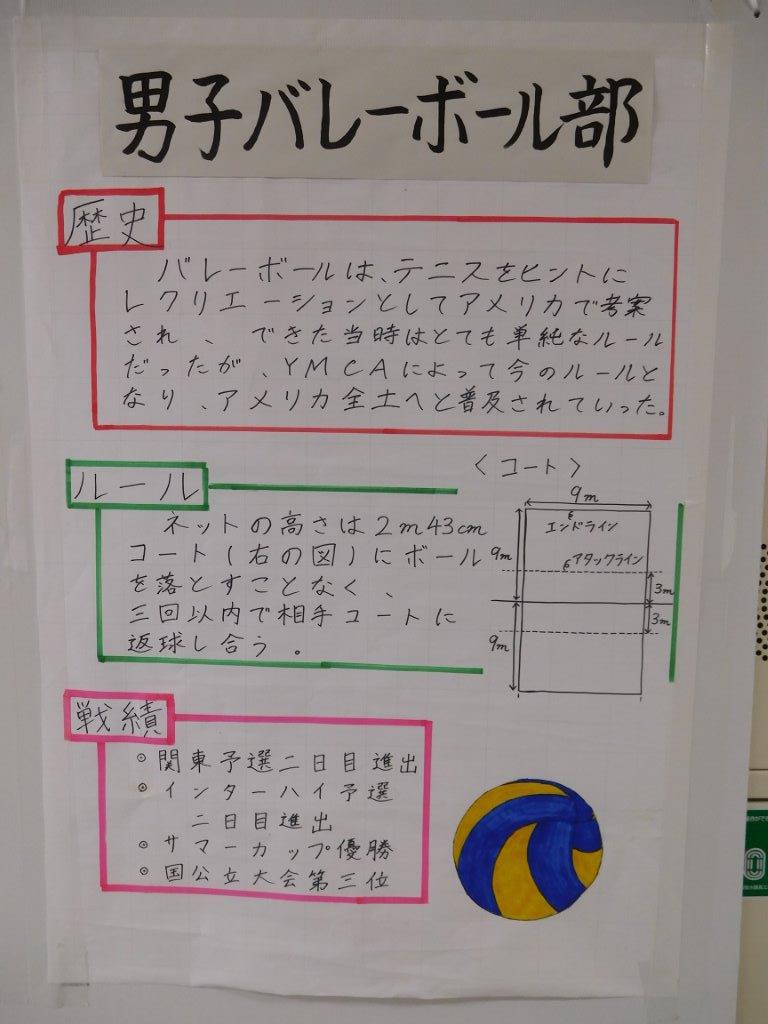 男子バレーボール部
歴史
バレーボールは、テニスをヒントに
レクリエーションとしてアメリカで考案
され、できた当時はとても単純なルール
だったが、YMCAによって今のルールと
なり、アメリカ全土へと普及されていった。
ルール
ネットの高さは2m43cm
コート(右の図)にボール
を落とすことなく、
三回以内で相手コートに
返球し合う。
〈コート〉
9m
エンドライン
9m
アタックライン
3m
3m
9m
戦績
◎関東予選二日目進出
◎インターハイ予選
二日目進出
◎サマーカップ優勝
◎国公立大会第三位